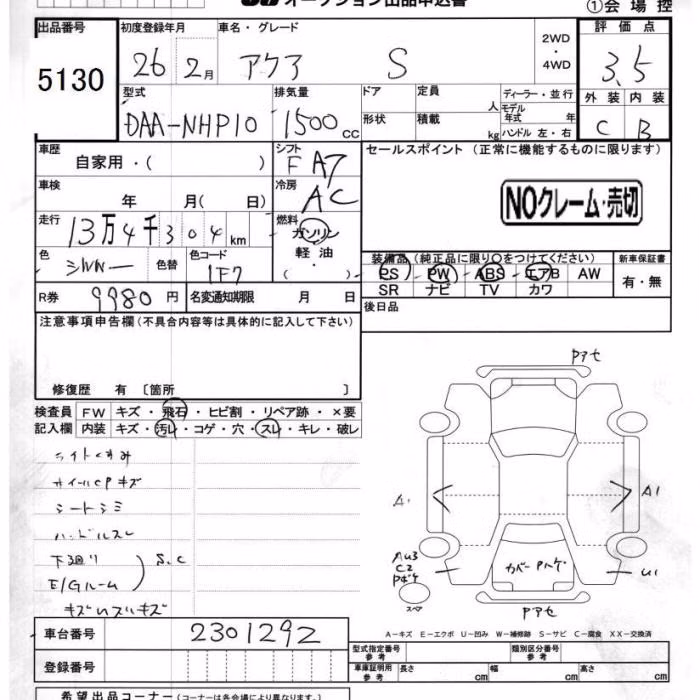 オークション出品申込書
①会場控
出品番号 初度登録年月 車名・グレード 2WD・4WD 評価点
5130 26 2月 アクア S 3.5
型式 排気量 ドア 定員 人 ディーラー・並行 外装 内装
DAA-NHP10 1500cc 形状 積載 kg モデル年式 年 ハンドル 左・右 C B
車歴 自家用・( ) シフト F A7 セールスポイント (正常に機能するものに限ります)
車検 年 月( 日) 冷房 AC NOクレーム・売切
走行 13万4千304km 燃料 ガソリン
軽油
・( )
色 シルバー 色替 色コード 1F7 装備品 (純正品に限り○をつけてください) 新車保証書
PS PW ABS エアB AW 有・無
SR ナビ TV カワ
R券 9980円 名変通知期限 月 日 後日品
注意事項申告欄 (不具合内容等は具体的に記入して下さい)
修復歴 有 〔箇所 〕
検査員 FW キズ・飛石・ヒビ割・リペア跡・×要
記入欄 内装 キズ・汚れ・コゲ・穴・スレ・キレ・破レ
ライトくすみ
ホイールCPキズ
シートシミ
ハンドルスレ
下廻り
E/Gルーム
S.C
Pアセ
A1
A1
AU3
C2
Pボケ
スペア
カバーPハゲ
U1
Pアセ
A-キズ E-エクボ U-凹み W-補修跡 S-サビ C-腐食 XX-交換済
車台番号 2301292
登録番号
型式指定番号 参考 類別区分番号 参考
車庫証明用 参考 長さ cm 幅 cm 高さ cm
希望出品コーナー (コーナーは各会場により異なります)